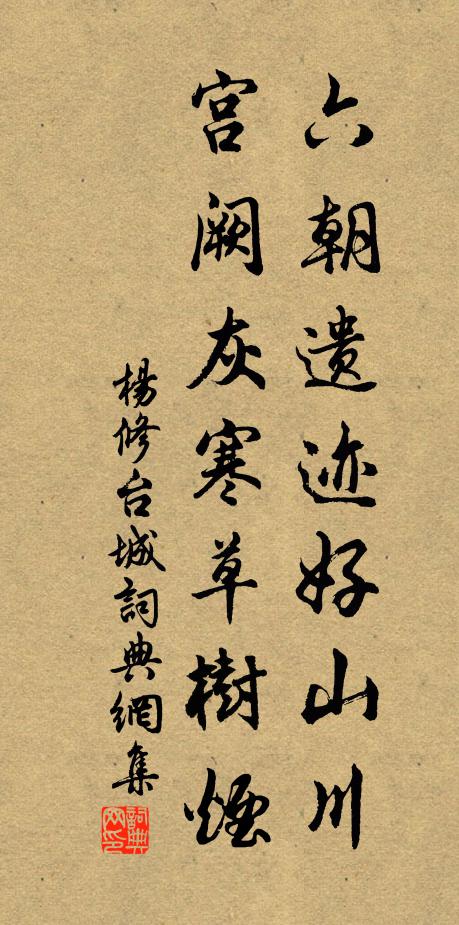 六朝遗迹好山川
宫阙灰寒草樹煙
楊修台城詞典網集
詞典網印